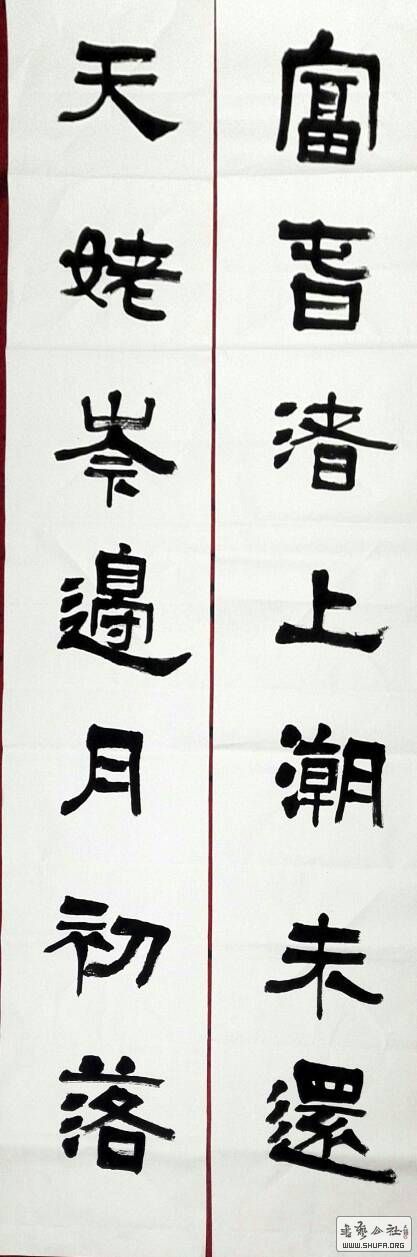 富春渚上潮未還
天姥岑邊月初落
書藝公社
WWW.SHUFA.ORG